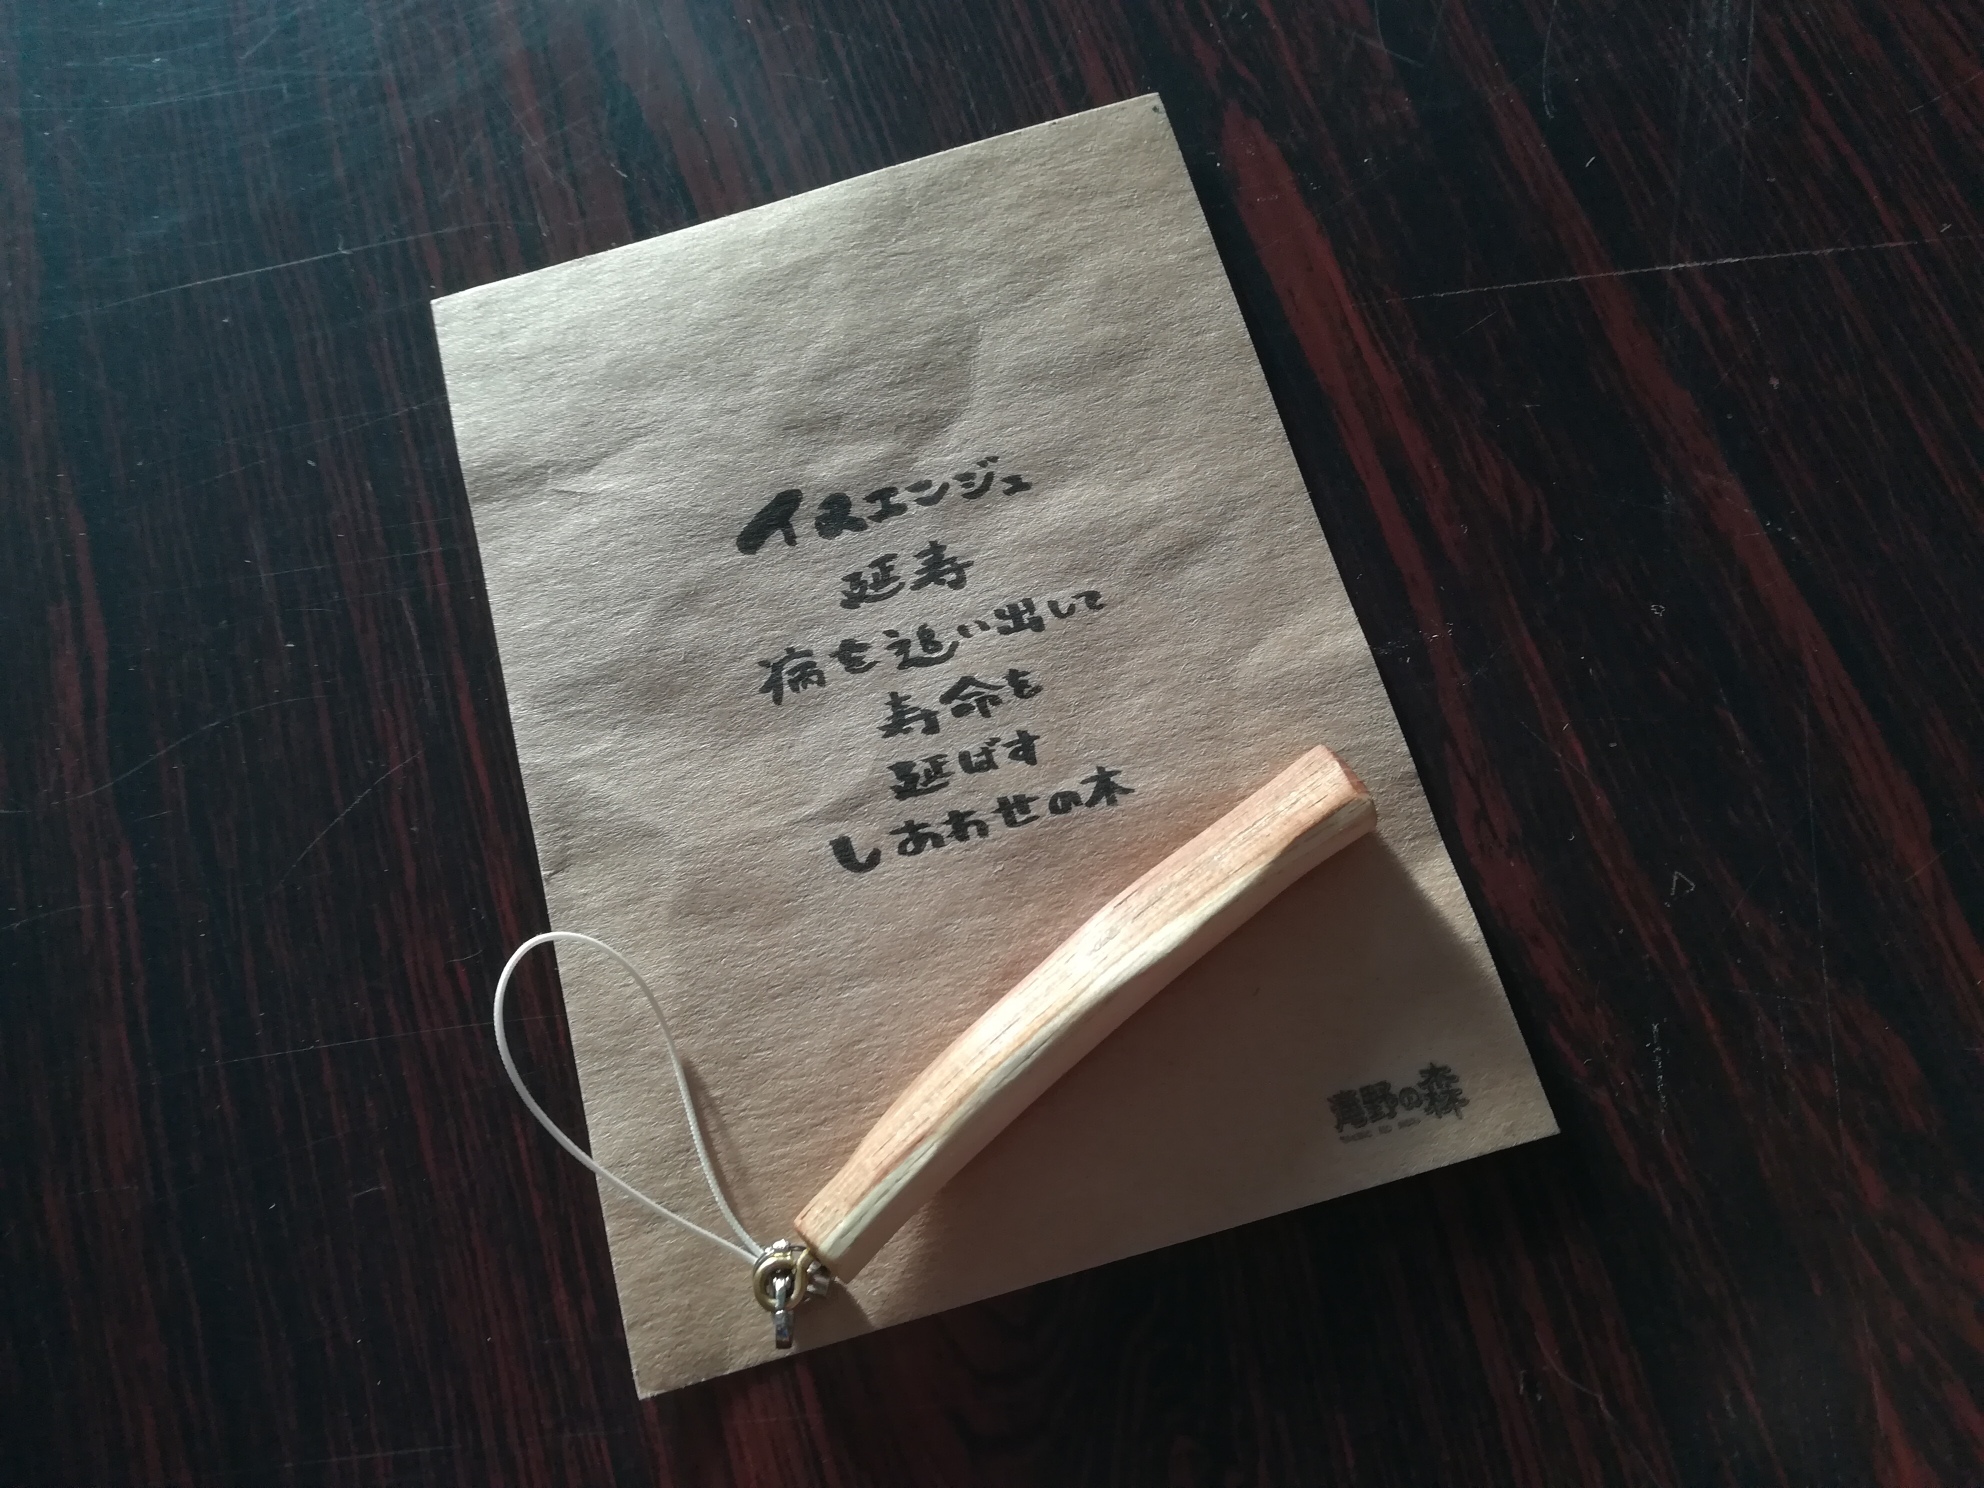 イヌエンジュ
延寿
病を追い出して
寿命を
延ばす
しあわせの木